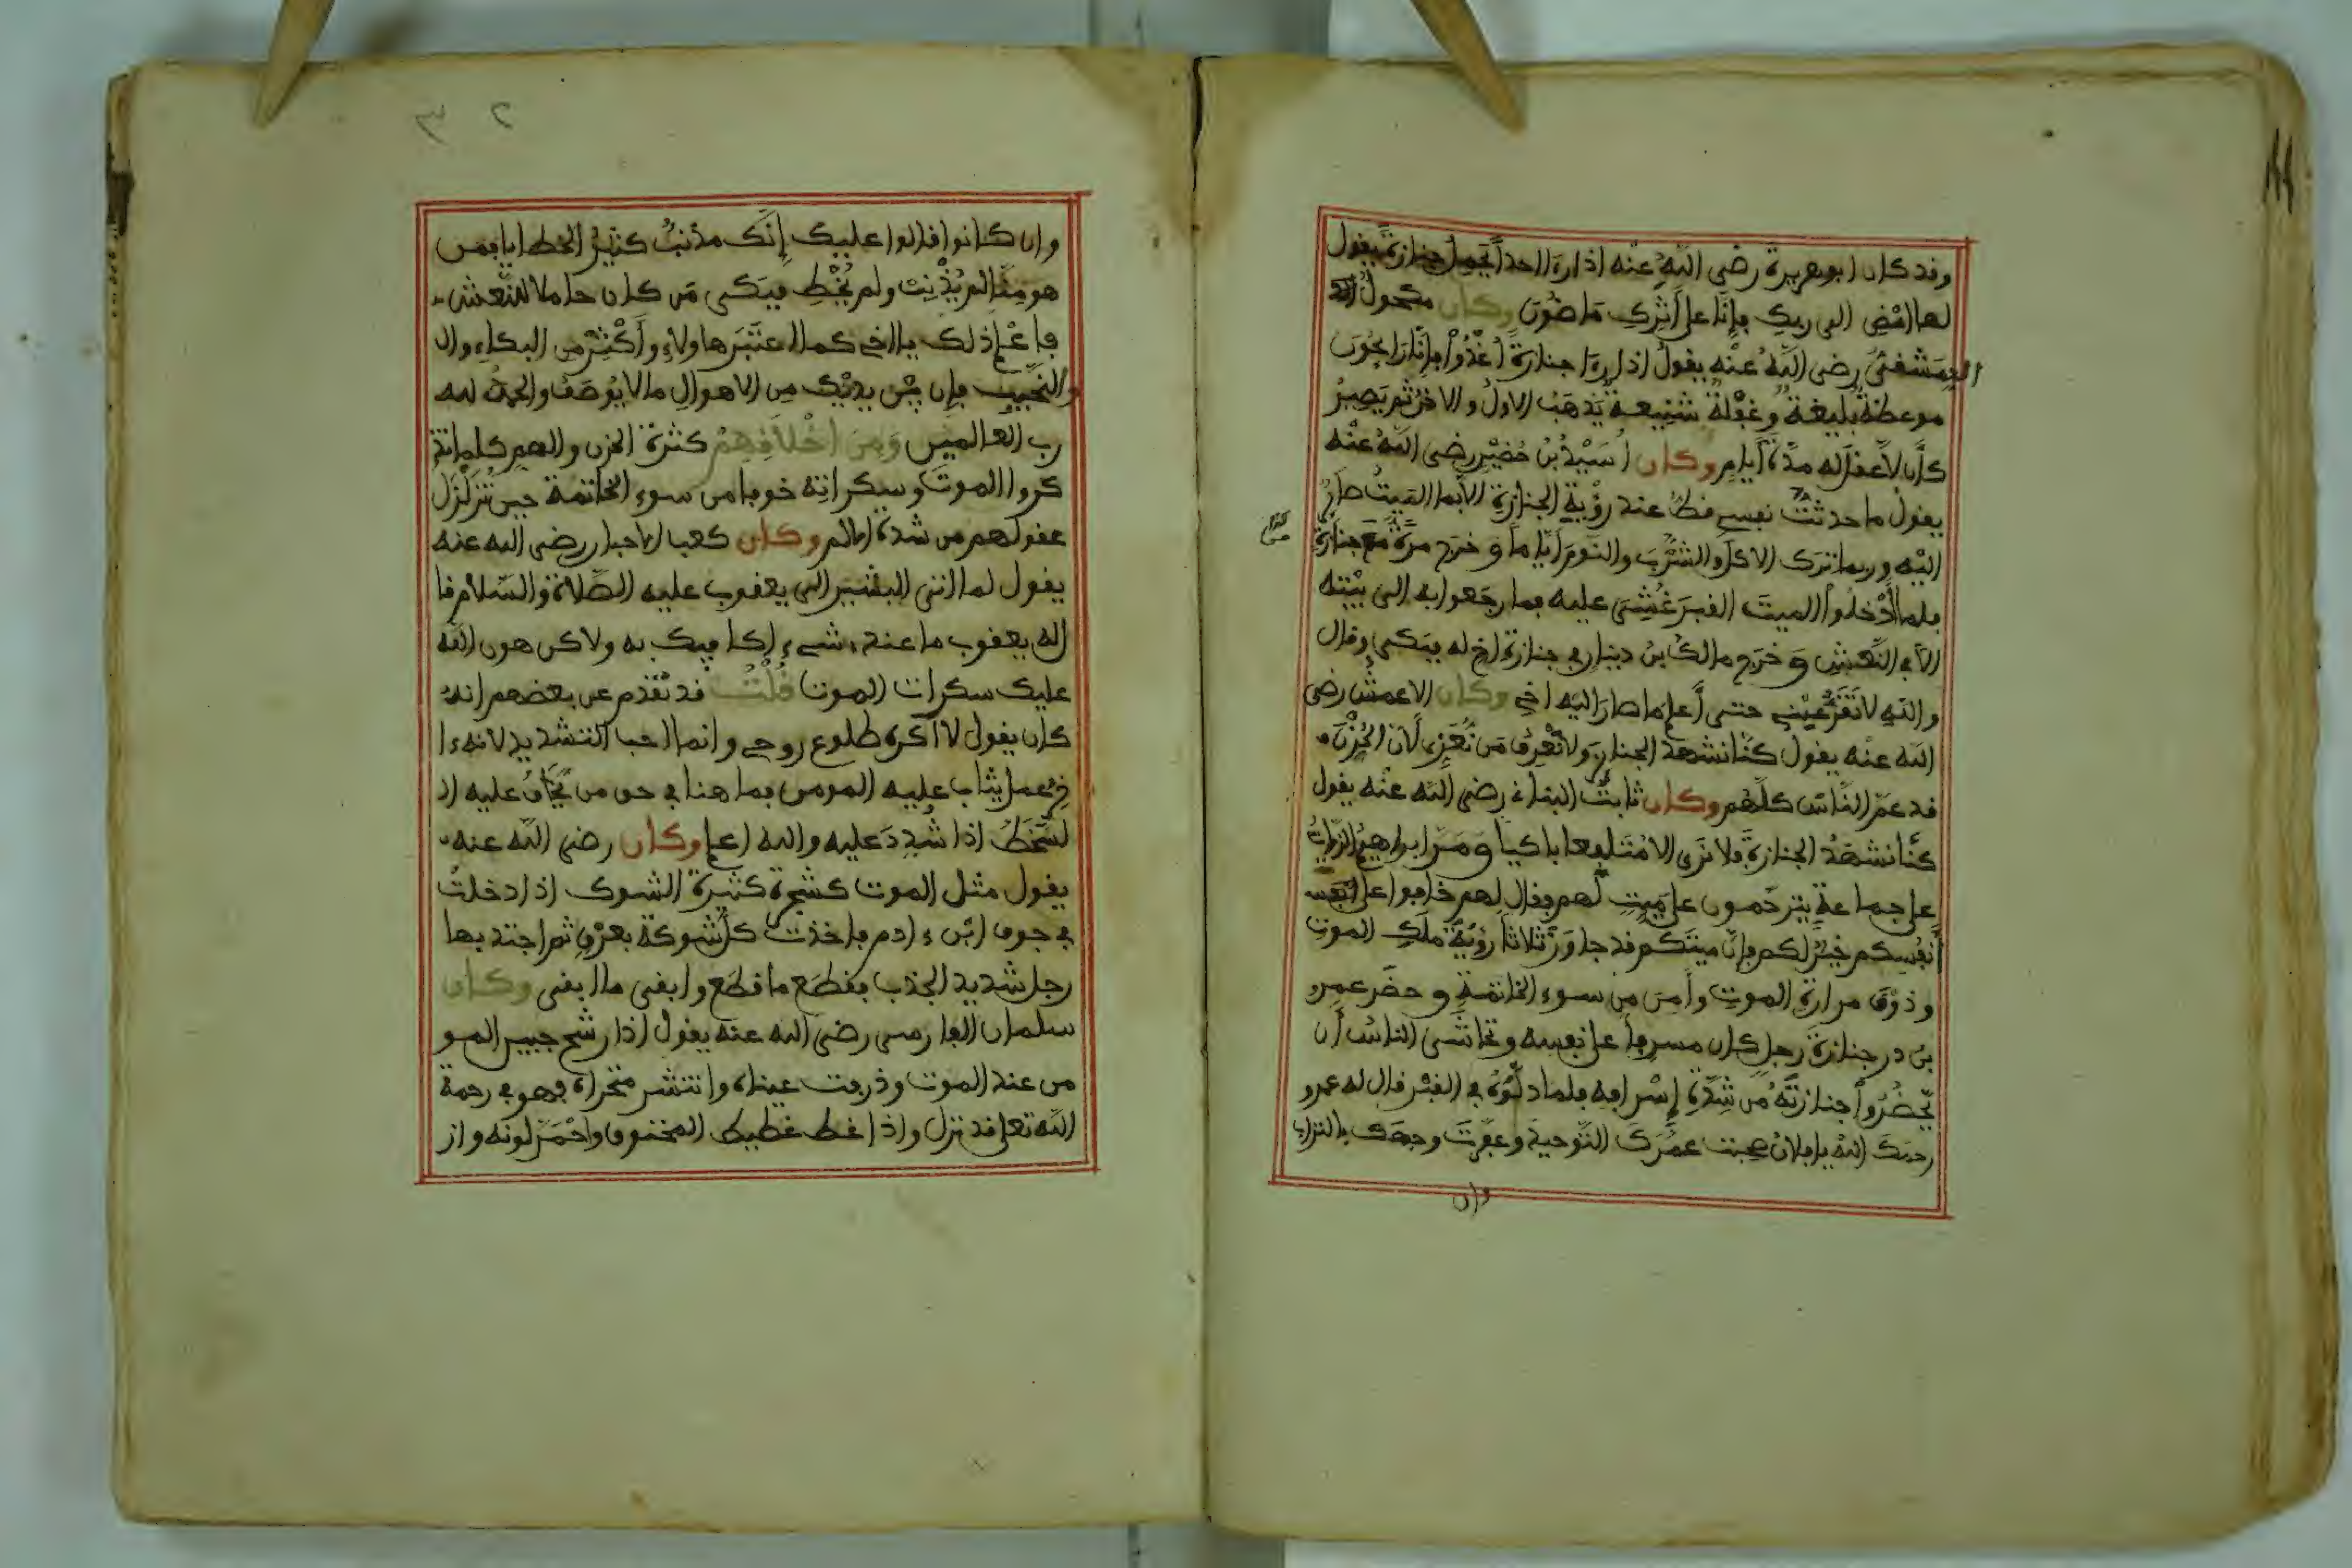 وقد كان ابو هريرة رضى الله عنه اذا رءا احدا يحمل جنازة يقول
لها امْضِ الى ربك فإنا على أثرك ماضون وكان مكحول
الدمشقىّ رضى الله عنه يقول اذا رءا جنازة اغدُوا فإنّا رايحون
موعظة بليغة وغفلة شنيعة يذهب الاول والاخر ثم يصير
كأن لا عقل له مدة أيام وكان أسَيْدُ بن حُضَيْر رضى الله عنه
يقول ما حدثت نفسى قط عند رؤية الجنازة الا بما الميت صائر
اليه وربما ترك الاكل والشرب والنوم أياما وخرج مرة مع جنازة
فلما أدخلوا الميت القبر غُشى عليه فما رجعوا به الى بيته
الا فى النعش وخرج مالك بن دينار فى جنازة اخ له يبكى وقال
والله لا تقر عينى حتى أعلم ما صار اليه اخى وكان الاعمش رضى
الله عنه يقول كنا نشهد الجنازة ولا نعرف من نُعَزِى لان الحزن
قد عم الناس كلهم وكان ثابت البنانى رضى الله عنه يقول
كنا نشهد الجنازة فلا نرى الا متلفعا باكيا ومر ابراهيم الزيات
على جماعة يترحمون على ميت لهم فقال لهم خافوا على
أنفسكم خير لكم فإن ميتكم قد جاوز ثلاثا رؤية ملك الموت
وذوق مرارة الموت وأمن من سوء الخاتمة وحضر عمرو
بن در جنازة رجل كان مسرفا على نفسه وتحاشى الناس أن
يحضُروا جنازته من شدة إسرافه فلما دلّوه فى القبر قال له عمرو
رحمك الله يا فلان صحبت عمرك التوحيد وعفرت وجهك بالتراب
وان
٣ ٢
وان كانوا قالوا عليك إنك مذنب كثير الخطايا فمن
هو منا لم يُذْنِبْ ولم يُخْطِ فبكى من كان حاملا للنعش
فاعلم ذلك يا اخى كما اعتبر هاولاء وأكثر من البكاء وال
والنحيب فإن بين يديك من الاهوال ما لا يوصف والحمد لله
رب العالمين وَمِنَ اخْلَاقِهِمْ كثرة الحزن والهم كلما تذ
كروا الموت وسكراته خوفا من سوء الخاتمة حين تتزلزل
عقولهم من شدة الالم وكان كعب الاحبار رضى الله عنه
يقول لما اتى البشير الى يعقوب عليه الصلاة والسلام قا
له يعقوب ما عنده شىء اكافيك به ولاكن هون الله
عليك سكرات الموت قُلْتُ قد تقدم عن بعضهم انه
كان يقول لا أكره طلوع روحى وانما احب التشديد لانه ءا
خر عمل يثاب عليه المومن فما هنا فى حق من يخاف عليه ال
لسّخط اذا شُدِدَ عليه والله اعلم وكان رضى الله عنه
يقول مثل الموت كشجرة كثيرة الشوك اذا دخلت
فى جوف ابن ءادم فاخذت كل شوكة بعرق ثم اجتذبها
رجل شديد الجذب فقطع ما قطع وابقى ما ابقى وكان
سلمان الفارسى رضى الله عنه يقول اذا رشح جبين المو
من عند الموت وذرفت عيناه وانتشر منخراه فهو فى رحمة
الله تعلى قد نزل واذا غط غطيط المخنوق واحْمَرّ لونه واز